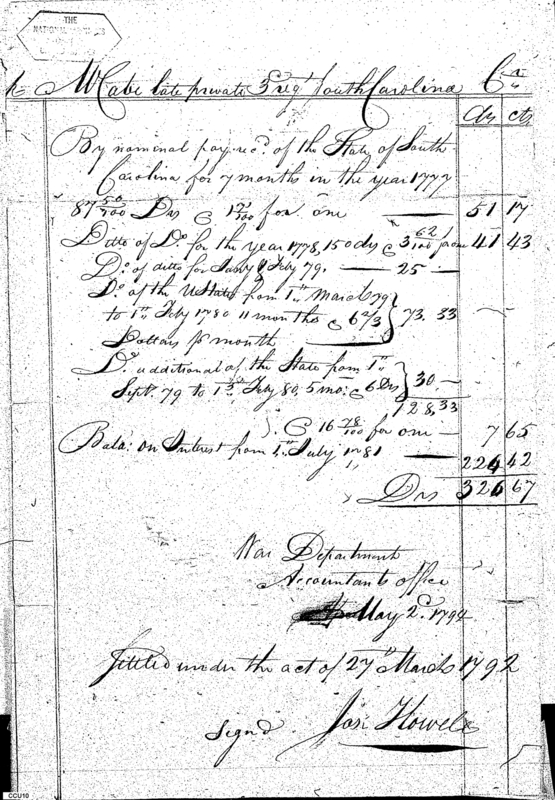 THE
NATIONAL ARCHIVES
McCabe late private 3 regt South Carolina Cr
Drs cts
By nominal pay rec.d of the State of South
Carolina for 7 months in the year 1777
87 50/100 Drs @ 1 71/100 for one 51 17
Ditto of Do. for the year 1778, 150 drs @ 3 62/100 for one 41 43
Do. of ditto for Jany & Feby 79. 25 —
Do. of the U States from 1st March 79
to 1st Feby 1780 11 months @ 6 2/3 73.33
Dollars p month
Do. additional of the State from 1st
Sept. 79 to 1st Feby 80. 5 mo: @ 6 Drs 30 —
128,33
@ 16 78/100 for one — 7 65
Bala: on Interest from 1st July 1781 226 42
Drs 326 67
War Department
Accountants office
May 2d. 1794
Settled under the act of 27th March 1792
Signd. Jos: Howell
CCU10